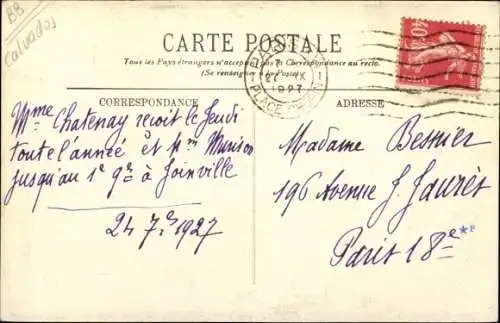 BB
Calvados
CARTE POSTALE
Tous les Pays étrangers n'acceptent pas la Correspondance au recto.
(Se renseigner à la Poste)
CORRESPONDANCE
ADRESSE
1927
PLACE
40
Mme Chatenay reçoit le Jeudi
toute l'année et Mme Munson
jusqu'au 1e 9re à Joinville
24 7e 1927
Madame Besnier
196 Avenue J. Jaurès
Paris 18e